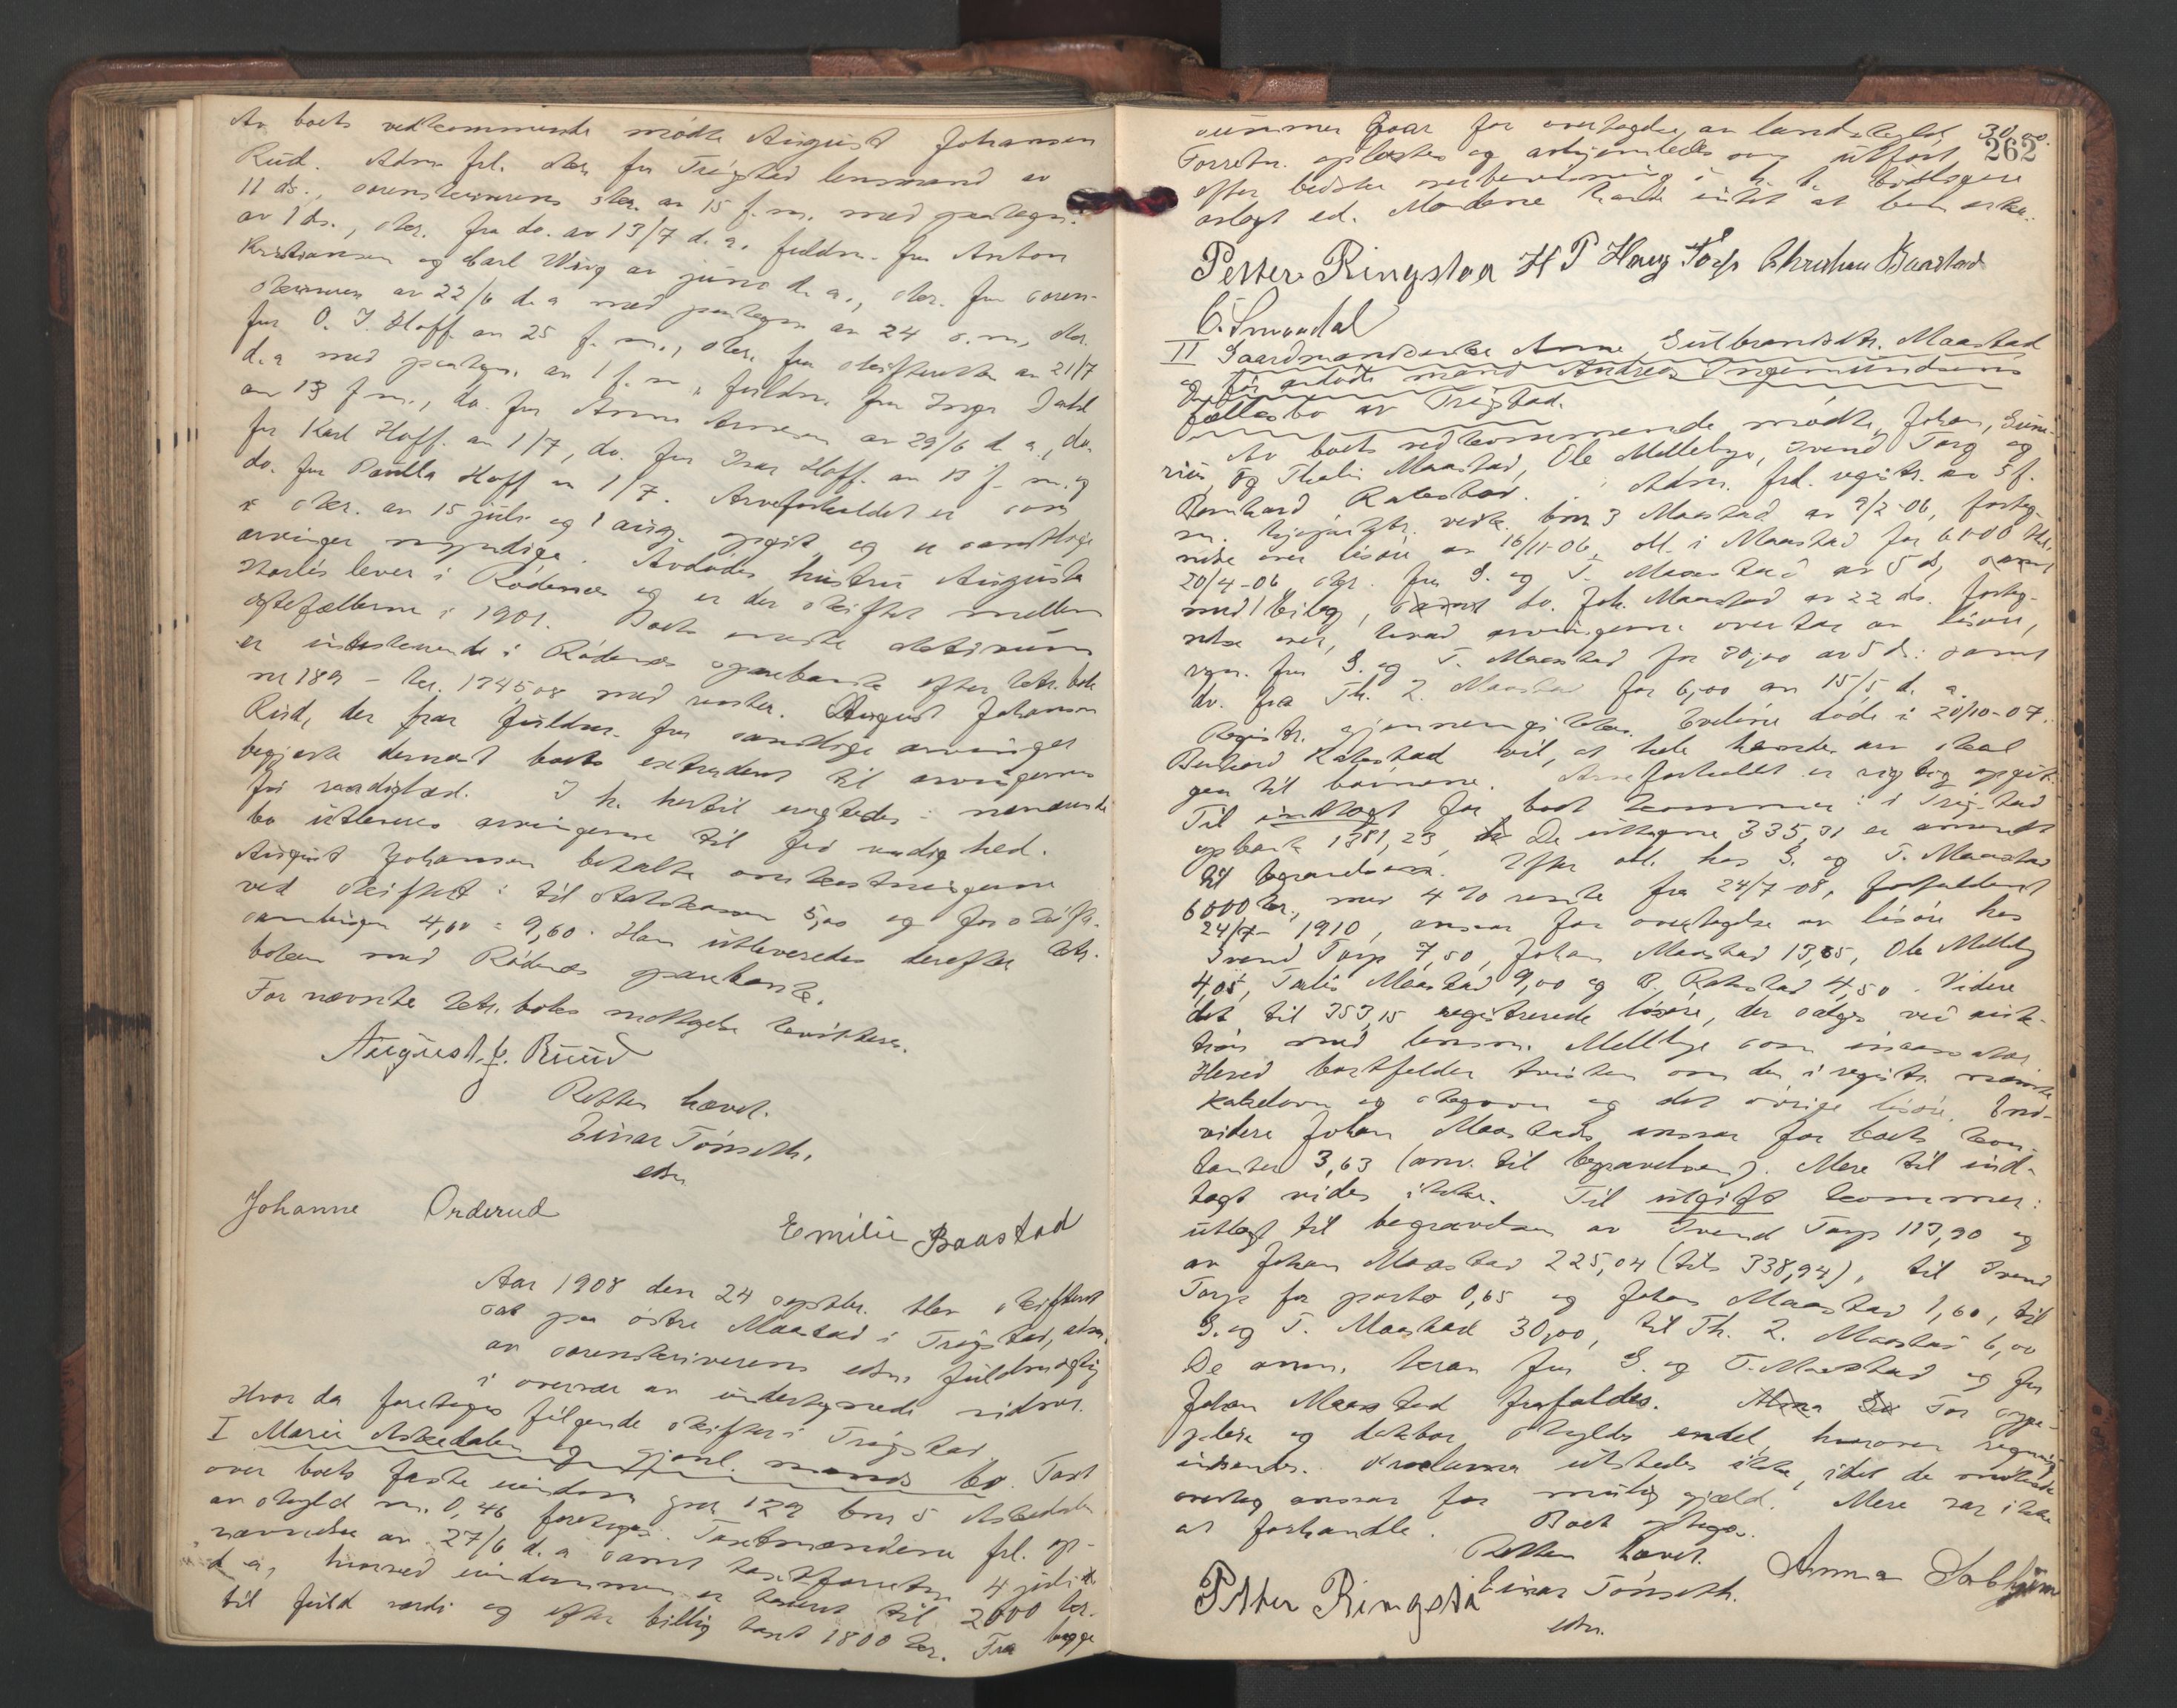 Av boets vedkommende mødte August Johansen
Rud. Adm. frl. skr. fra Trøgstad lensmand av
11 ds., sorenskriverens skr. av 15 f. m. med paategn.
av 1 ds., skr. fra do. av 13/7 d. a. fuldm. fra Anton
Kristiansen og Carl Wiig av juni d. a., skr. fra soren-
skriveren av 22/6 d. a med paategn. av 24 s. m., skr.
fra O. J. Hoff av 25 f. m., skr. fra skifteretten av 21/7
d. a med paategn. av 1 f. m., fuldm. fra Inga Dahl
av 13 f m., do. fra Anna Arnesen av 29/6 d. a., do.
fra Karl Hoff. av 1/7, do. fra Ivar Hoff. av 13 f. m. og
do. fra Paulla Hoff av 1/7. Arveforholdet er som
i skr. av 15 juli og 1 aug. opgit og er samtlige
arvinger myndige. Avdødes hustru Augusta
lever i Rødenes og er der skiftet mellem
egtefællerne i 1901. Boets eneste aktivum
er indestaaende i Rødenes sparebank efter ktr. bok
nr 189 - kr. 1745,08 med renter. August Johansen
Rud, der har fuldm. fra samtlige arvinger
begjærte dernæst boets extraderet til arvingernes
fri raadighed. I h. hertil eragtedes: nærværende
bo utleveres arvingerne til fri raadighed.
August Johansen betalte omkostningerne
ved skiftet: til statskassen 5,00 og for skifte-
samlingen 4,60 = 9,60. Han utleveredes derefter ktr.
boken med Rødenes sparebank.
For nævnte ktr. boks mottagelse kvitteres.
August J. Ruud
Retten hævet.
Einar Tønseth.
edsv.
Johanne Orderud
Emilie Baastad
Aar 1908 den 24 septbr. blev skifteret
sat paa østre Maastad i Trøgstad, adm.
av sorenskriverens edsv. fuldmægtig
i overvær av undertegnede vidner.
Hvor da foretoges følgende skifter i Trøgstad
I Marie Askedalen og gjenl. mands bo. Taxt
over boets faste eiendom gnr 129 bnr 5 Askedalen
av skyld m. 0,46 foretoges. Taxtmændene frl. op-
nævnelse av 27/6 d. a samt taxtforretn. 4 juli
d. a, hvorved eiendommen er taxeret til 2000 kr.
til fuld værdi og efter billig taxt 1800 kr. Fra begge
262
summer gaar for overtagelse av landskyld 30,00.
Forretn. oplæstes og avhjemledes som utført
efter bedste overbevisning i h. t. tidligere
avlagt ed. Mændene havde intet at bemerke.
Petter Ringstad H P Haug Torp Christian Baastad
C. Smaadal
II Gaardmandsenke Anne Gulbrandsdtr. Maastad
og før avdøde mand Andreas Ingemundsens
fællesbo av Trøgstad.
Av boets vedkommende mødte Johan, Gune-
rius og Thorlis Maastad, Ole Mellebye, Svend Torp og
Bernhard Rakestad. Adm. frl. registr. av 5 f.
m. kjøpektr. vedk. bnr 3 Maastad av 9/2-06, forteg-
nelse over løsøre av 16/11-06, obl. i Maastad for 6000 kr.
20/4-06, skr. fra G. og T. Maastad av 5 ds, samt
med 1 bilag, do. Joh. Maastad av 22 ds. forteg-
nelse over, hvad arvingerne overtar av løsøre,
regn. fra G. og T. Maastad for 30,00 av 5 ds. samt
do. fra Th. L. Maastad for 6,00 av 15/5 d. a.
Registr. gjennemgikkes. Eveline døde i 20/10-07.
Bernhard Rakestad vil, at hele hendes arv skal
gaa til børnene. Arveforholdet er rigtig opgit.
Til indtægt for boet kommer: i Trøgstad
spbank 1381,23, De uttagne 335,31 er anvendt
til begravelsen. Efter obl. hos G. og T. Maastad
6000 kr, med 4 % rente fra 24/7-08, forfaldent
24/7- 1910, ansvar for overtagelse av løsøre hos
Svend Torp 7,50, Johan Maastad 13,65, Ole Melleby
4,05, Torlis Maastad 9,00 og B. Rakestad 4,50. Videre
det til 353,15 registrerede løsøre, der sælges ved auk-
tion med lensm. Mellbye som inkassator
Herved bortfalder tvisten om den i registr. nævnte
kakelovn og stegovn og det øvrige løsøre. End-
videre Johan Maastads ansvar for boets kon-
tanter 3,63 (anv. til begravelsen). Mere til ind-
tægt vides ikke. Til utgift kommer:
utlæg til begravelsen av Svend Torp 113,90 og
av Johan Maastad 225,04 (tils 338,94), til Svend
Torp for porto 0,65 og Johan Maastad 1,60, til
G. og T. Maastad 30,00, til Th. L. Maastad 6,00
De anm. krav fra G. og T. Maastad og fra
Johan Maastad frafaldes. For syge-
pleie og doktor skyldes endel, hvorover regning
indsendes. Proclama utstedes ikke, idet de mødende
overtog ansvar for mulig gjæld. Mere var ikke
at forhandle. Boet optages.
Retten hævet.
Petter Ringstad Einar Tønseth. Anna
edsv.